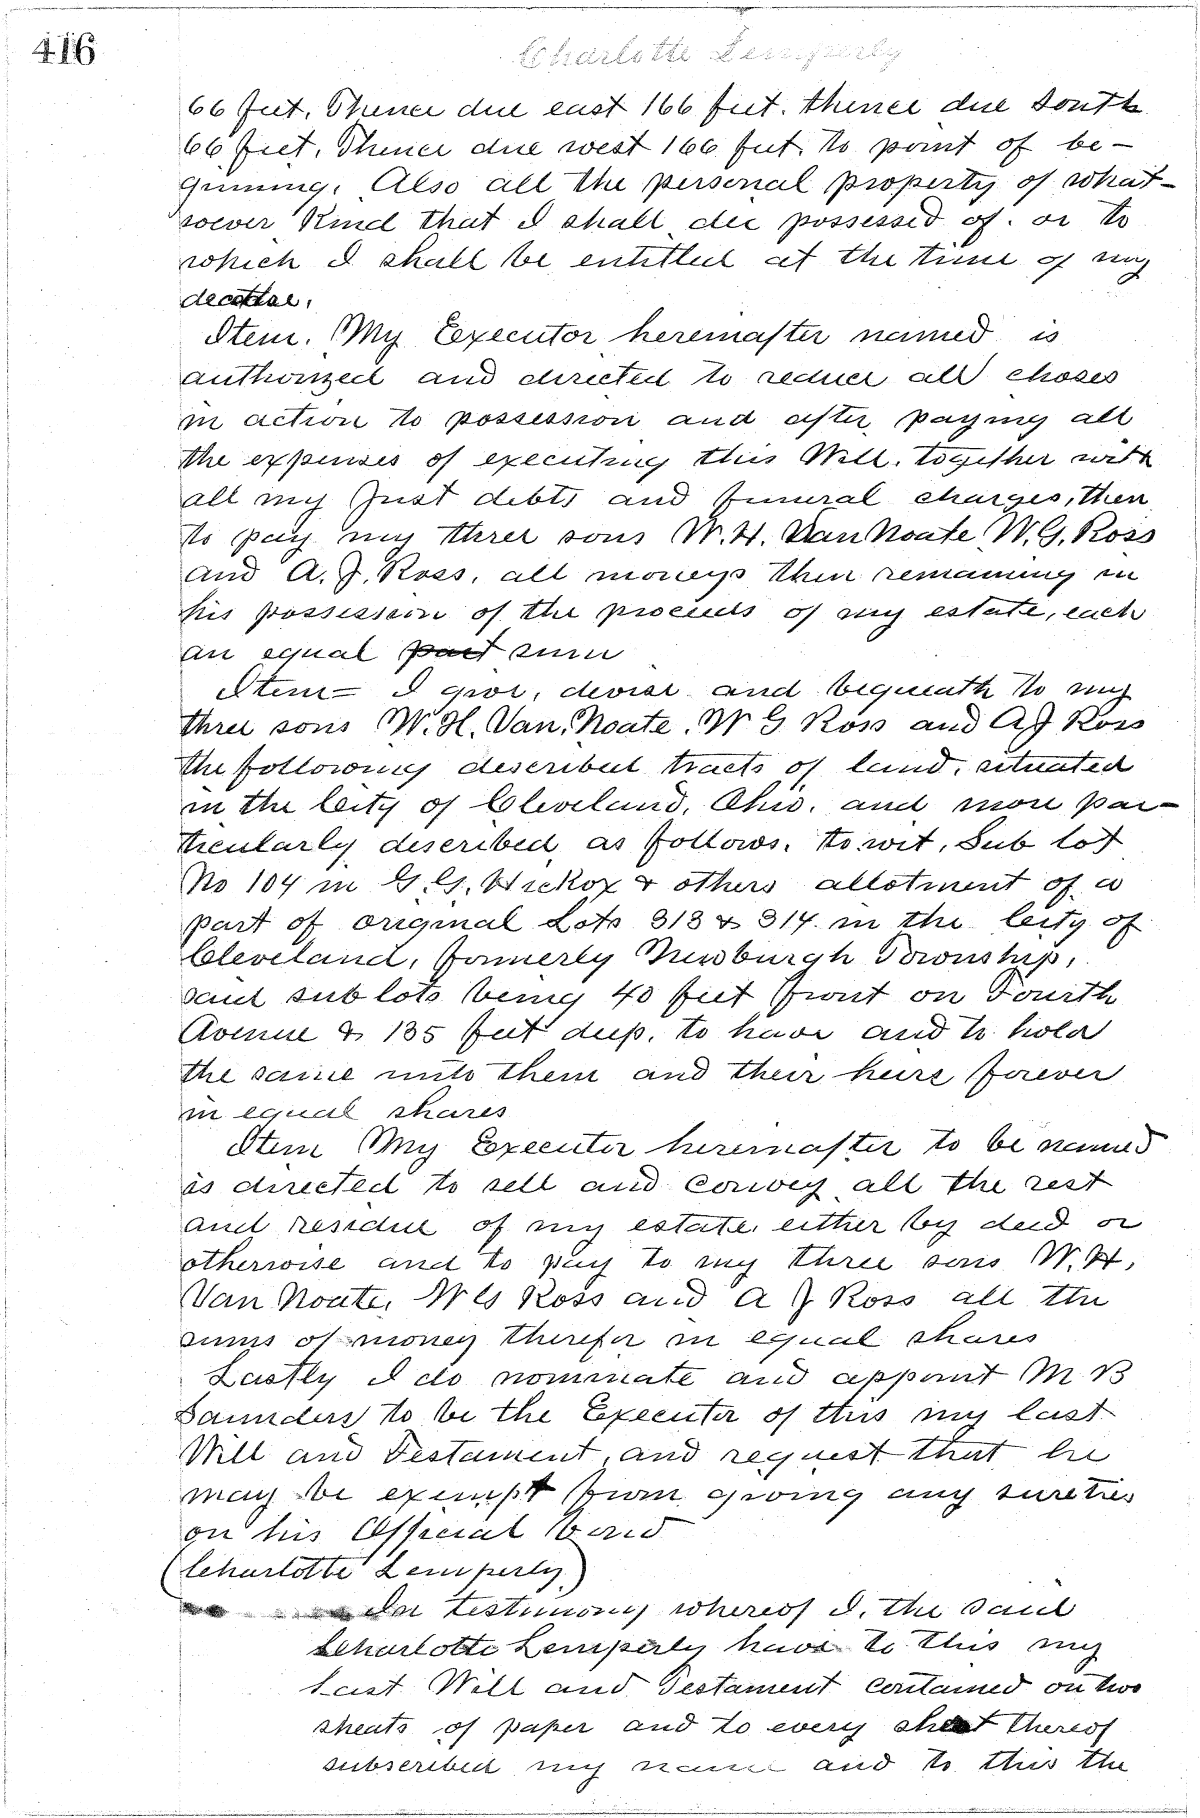 416
Charlotte Lemperly
66 feet, Thence due east 166 feet. thence due South
66 feet, Thence due west 166 feet. to point of be-
ginning. Also all the personal property of what-
soever Kind that I shall die possessed of. or to
which I shall be entitled at the time of my
decease.
Item. My Executor hereinafter named is
authorized and directed to reduce all choses
in action to possession and after paying all
the expenses of executing this Will. together with
all my Just debts and funeral charges, then
to pay my three sons W. H. Van Noate W. G. Ross
and A. J. Ross, all moneys then remaining in
his possession of the proceeds of my estate, each
an equal part sum
Item= I give, devise and bequeath to my
three sons W. H. Van. Noate. W G Ross and A J Ross
the following described tracts of land, situated
in the City of Cleveland, Ohio. and more par-
ticularly described as follows. to.wit, Sub lot
No 104 in G. G. Hickox & others allotment of a
part of original Lots 313 & 314 in the City of
Cleveland, formerly Newburgh Township,
said sub lots being 40 feet front on Fourth
Avenue & 135 feet deep. to have and to hold
the same unto them and their heirs forever
in equal shares
Item My Executor hereinafter to be named
is directed to sell and convey all the rest
and residue of my estate, either by deed or
otherwise and to pay to my three sons W. H.
Van Noate, W G Ross and A J Ross all the
sums of money therefor in equal shares
Lastly I do nominate and appoint M B
Saunders to be the Executor of this my last
Will and Testament, and request that he
may be exempt from giving any sureties
on his Official bond
(Charlotte Lemperly)
In testimony whereof I, the said
Charlotte Lemperly have to this my
Last Will and Testament contained on two
sheats of paper and to every sheet thereof
subscribed my name and to this the